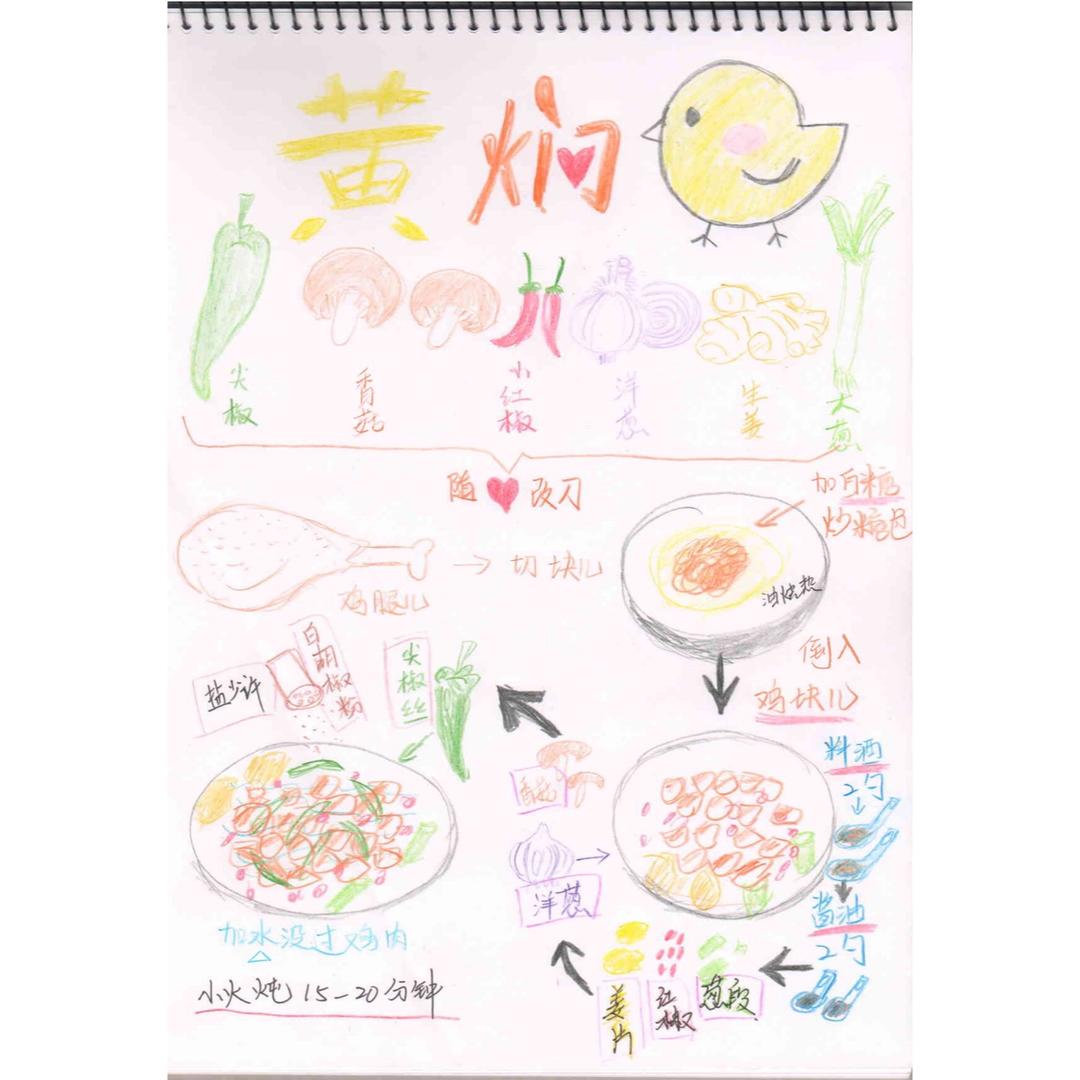 黄焖
尖椒
香菇
小红椒
洋葱
生姜
大葱
随改刀
加白糖
炒糖色
鸡腿儿
切块儿
油烧热
倒入
鸡块儿
料酒
2勺
酱油
2勺
葱段
红椒
姜片
洋葱
香菇
尖椒丝
白胡椒粉
盐少许
加水没过鸡肉
小火炖15-20分钟